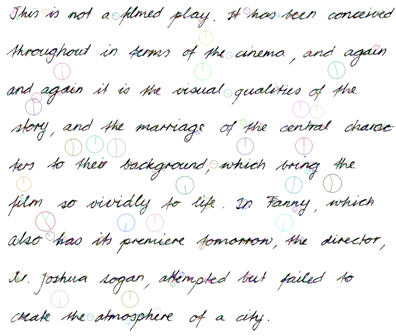 This is not a filmed play. It has been conceived
throughout in terms of the cinema, and again
and again it is the visual qualities of the
story, and the marriage of the central charac-
ters to their background, which bring the
film so vividly to life. In Fanny, which
also has its premiere tomorrow, the director,
Mr. Joshua Logan, attempted but failed to
create the atmosphere of a city.